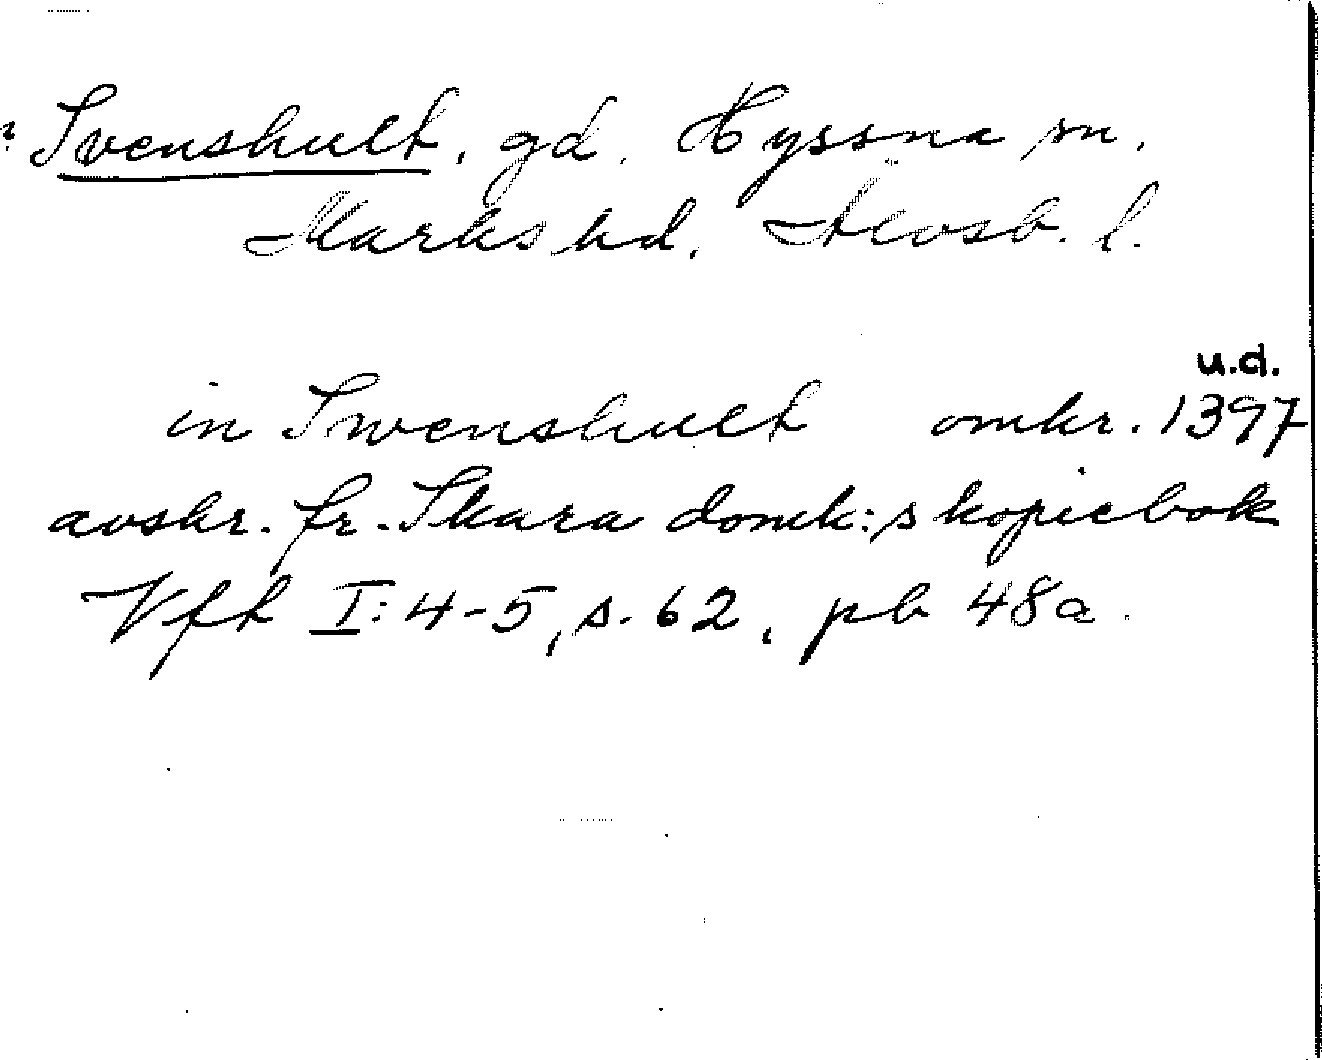 Svenshult, gd. Hyssna sn.
Marks hd. Älvsb. l.
u.d.
in Swenshult omkr. 1397
avskr. fr. Skara domk:s kopiebok
Vft I: 4-5, s. 62, pb 48a.